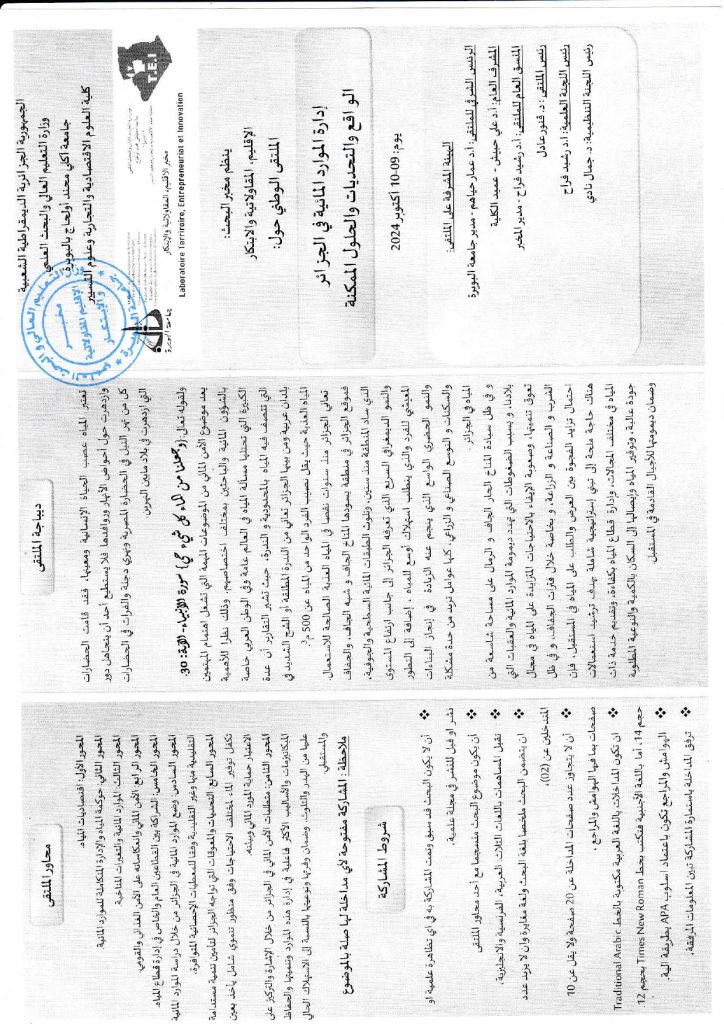 الجمهورية الجزائرية الديمقراطية الشعبية
وزارة التعليم العالي والبحث العلمي
جامعة أكلي محند أولحاج بالبويرة
كلية العلوم الاقتصادية والتجارية وعلوم التسيير
T.E.I
جامعة البويرة
مخبر الإقليم، المقاولاتية والابتكار
Laboratoire Territoire, Entrepreneuriat et Innovation
ينظم مخبر البحث:
الإقليم، المقاولاتية والابتكار
الملتقى الوطني حول:
إدارة الموارد المائية في الجزائر
الواقع والتحديات والحلول الممكنة
يوم: 09-10 أكتوبر 2024
الهيئة المشرفة على الملتقى:
الرئيس الشرفي للملتقى: أ.د عمار حياهم - مدير جامعة البويرة
المشرف العام: أ.د علي حبيش - عميد الكلية
المنسق العام للملتقى: أ.د رشيد فراح - مدير المخبر
رئيس الملتقى: د. قنور عادل
رئيس اللجنة العلمية: أ.د رشيد فراح
رئيس اللجنة التنظيمية: د. جمال نادي
ديباجة الملتقى
تعتبر المياه عصب الحياة الإنسانية ومعينها، فقد قامت الحضارات
وازدهرت حول أحواض الأنهار وروافدها فلا يستطيع أحد أن يتجاهل دور
كل من نهر النيل في الحضارة المصرية ونهري دجلة والفرات في الحضارات
التي ازدهرت في بلاد مابين النهرين
ولقوله تعالى (وجعلنا من الماء كل شيء حي) سورة الأنبياء - الآية: 30.
يعد موضوع الأمن المائي من الموضوعات المهمة التي تشغل اهتمام المهتمين
بالشؤون المائية والباحثين بمختلف اختصاصهم، وذلك نظرا للأهمية
الكبيرة التي تحتلها مسألة المياه في العالم عامة وفي الوطن العربي خاصة
التي تتصف فيه المياه بالمحدودية و الندرة، حيث تشير التقارير أن عدة
بلدان عربية ومن بينها الجزائر تعاني من الندرة المطلقة أو الشح الشديد في
المياه العذبة حيث يقل نصيب الفرد الواحد من المياه عن 500 م3.
تعاني الجزائر منذ سنوات نقصا في المياه العذبة الصالحة للاستعمال
فموقع الجزائر في منطقة يسودها المناخ الجاف و شبه الجاف والجفاف
الذي ساد المنطقة منذ سنين، وتلوث الطبقات المائية السطحية والجوفية،
والنمو الديمغرافي السريع الذي تعرفه الجزائر إلى جانب ارتفاع المستوى
المعيشي للفرد والذي يتطلب استهلاك أوسع للمياه، إضافة إلى التطور
والنمو الحضري الواسع الذي ينجم عنه الزيادة في إنجاز البناءات
والسكنات و التوسع الصناعي و الزراعي، كلها عوامل تزيد من حدة مشكلة
المياه في الجزائر
و في ظل سيادة المناخ الحار الجاف و الرمال على مساحة شاسعة من
بلادنا، و بسبب الضغوطات التي تهدد ديمومة الموارد المائية والعقبات التي
تعوق تنميتها، وصعوبة الإيفاء بالاحتياجات المتزايدة على المياه في مجال
الشرب و الصناعة و الزراعة، و بخاصة خلال فترات الجفاف، و في ظل
احتمال تزايد الفجوة بين العرض والطلب على المياه في المستقبل، فإن
هناك حاجة ملحة إلى تبني استراتيجية شاملة بهدف ترشيد استعمالات
المياه في مختلف المجالات، وإدارة قطاع المياه بكفاءة، وتقديم خدمة ذات
جودة عالية، وتوفير المياه وإيصالها إلى السكان بالكمية والنوعية المطلوبة
وضمان ديمومتها للأجيال القادمة في المستقبل.
محاور الملتقى
المحور الأول: اقتصاديات المياه.
المحور الثاني: حوكمة المياه والإدارة المتكاملة للموارد المائية
المحور الثالث: الموارد المائية والتغيرات المناخية
المحور الرابع: الأمن المائي وانعكاساته على الأمن الغذائي والقومي.
المحور الخامس: الشراكة بين القطاعين العام والخاص في إدارة قطاع المياه.
المحور السادس: وضع الموارد المائية في الجزائر من خلال دراسة الموارد المائية
التقليدية منها وغير التقليدية وفقا للمعطيات الإحصائية المتوافرة.
المحور السابع: التحديات والمعوقات التي تواجه الجزائر لتأمين تنمية مستدامة
تكفل توفير الماء لمختلف الاحتياجات وفق منظور تنموي شامل يأخذ بعين
الاعتبار حماية المورد المائي وبيئته.
المحور الثامن: متطلبات الأمن المائي في الجزائر من خلال الإشارة والتركيز على
الميكانيزمات والأساليب الأكثر فاعلية في إدارة هذه الموارد وتنميتها والحفاظ
عليها من الهدر والتلوث، وضمان وفرتها ونوعيتها بالنسبة إلى الاستهلاك الحالي
والمستقبلي
ملاحظة: المشاركة مفتوحة لأي مداخلة لها صلة بالموضوع
شروط المشاركة
❖ أن لا يكون البحث قد سبق وتمت المشاركة به في أي تظاهرة علمية أو
نشر أو قبل للنشر في مجلة علمية.
❖ أن يكون موضوع البحث منسجما مع أحد محاور الملتقى
❖ تقبل المساهمات باللغات الثلاث: العربية، الفرنسية والانجليزية.
❖ أن يتضمن البحث ملخصا بلغة البحث ولغة مغايرة وأن لا يزيد عدد
المتدخلين عن (02).
❖ أن لا يتجاوز عدد صفحات المداخلة عن 20 صفحة ولا يقل عن 10
صفحات بما فيها الهوامش والمراجع.
❖ أن تكون المداخلات باللغة العربية مكتوبة بالخط Traditional Arabic
حجم 14، أما باللغة الأجنبية فتكتب بخط Times New Roman بحجم 12
❖ الهوامش والمراجع تكون باعتماد أسلوب APA بطريقة آلية.
❖ ترفق المداخلة باستمارة المشاركة تبين المعلومات المرفقة.